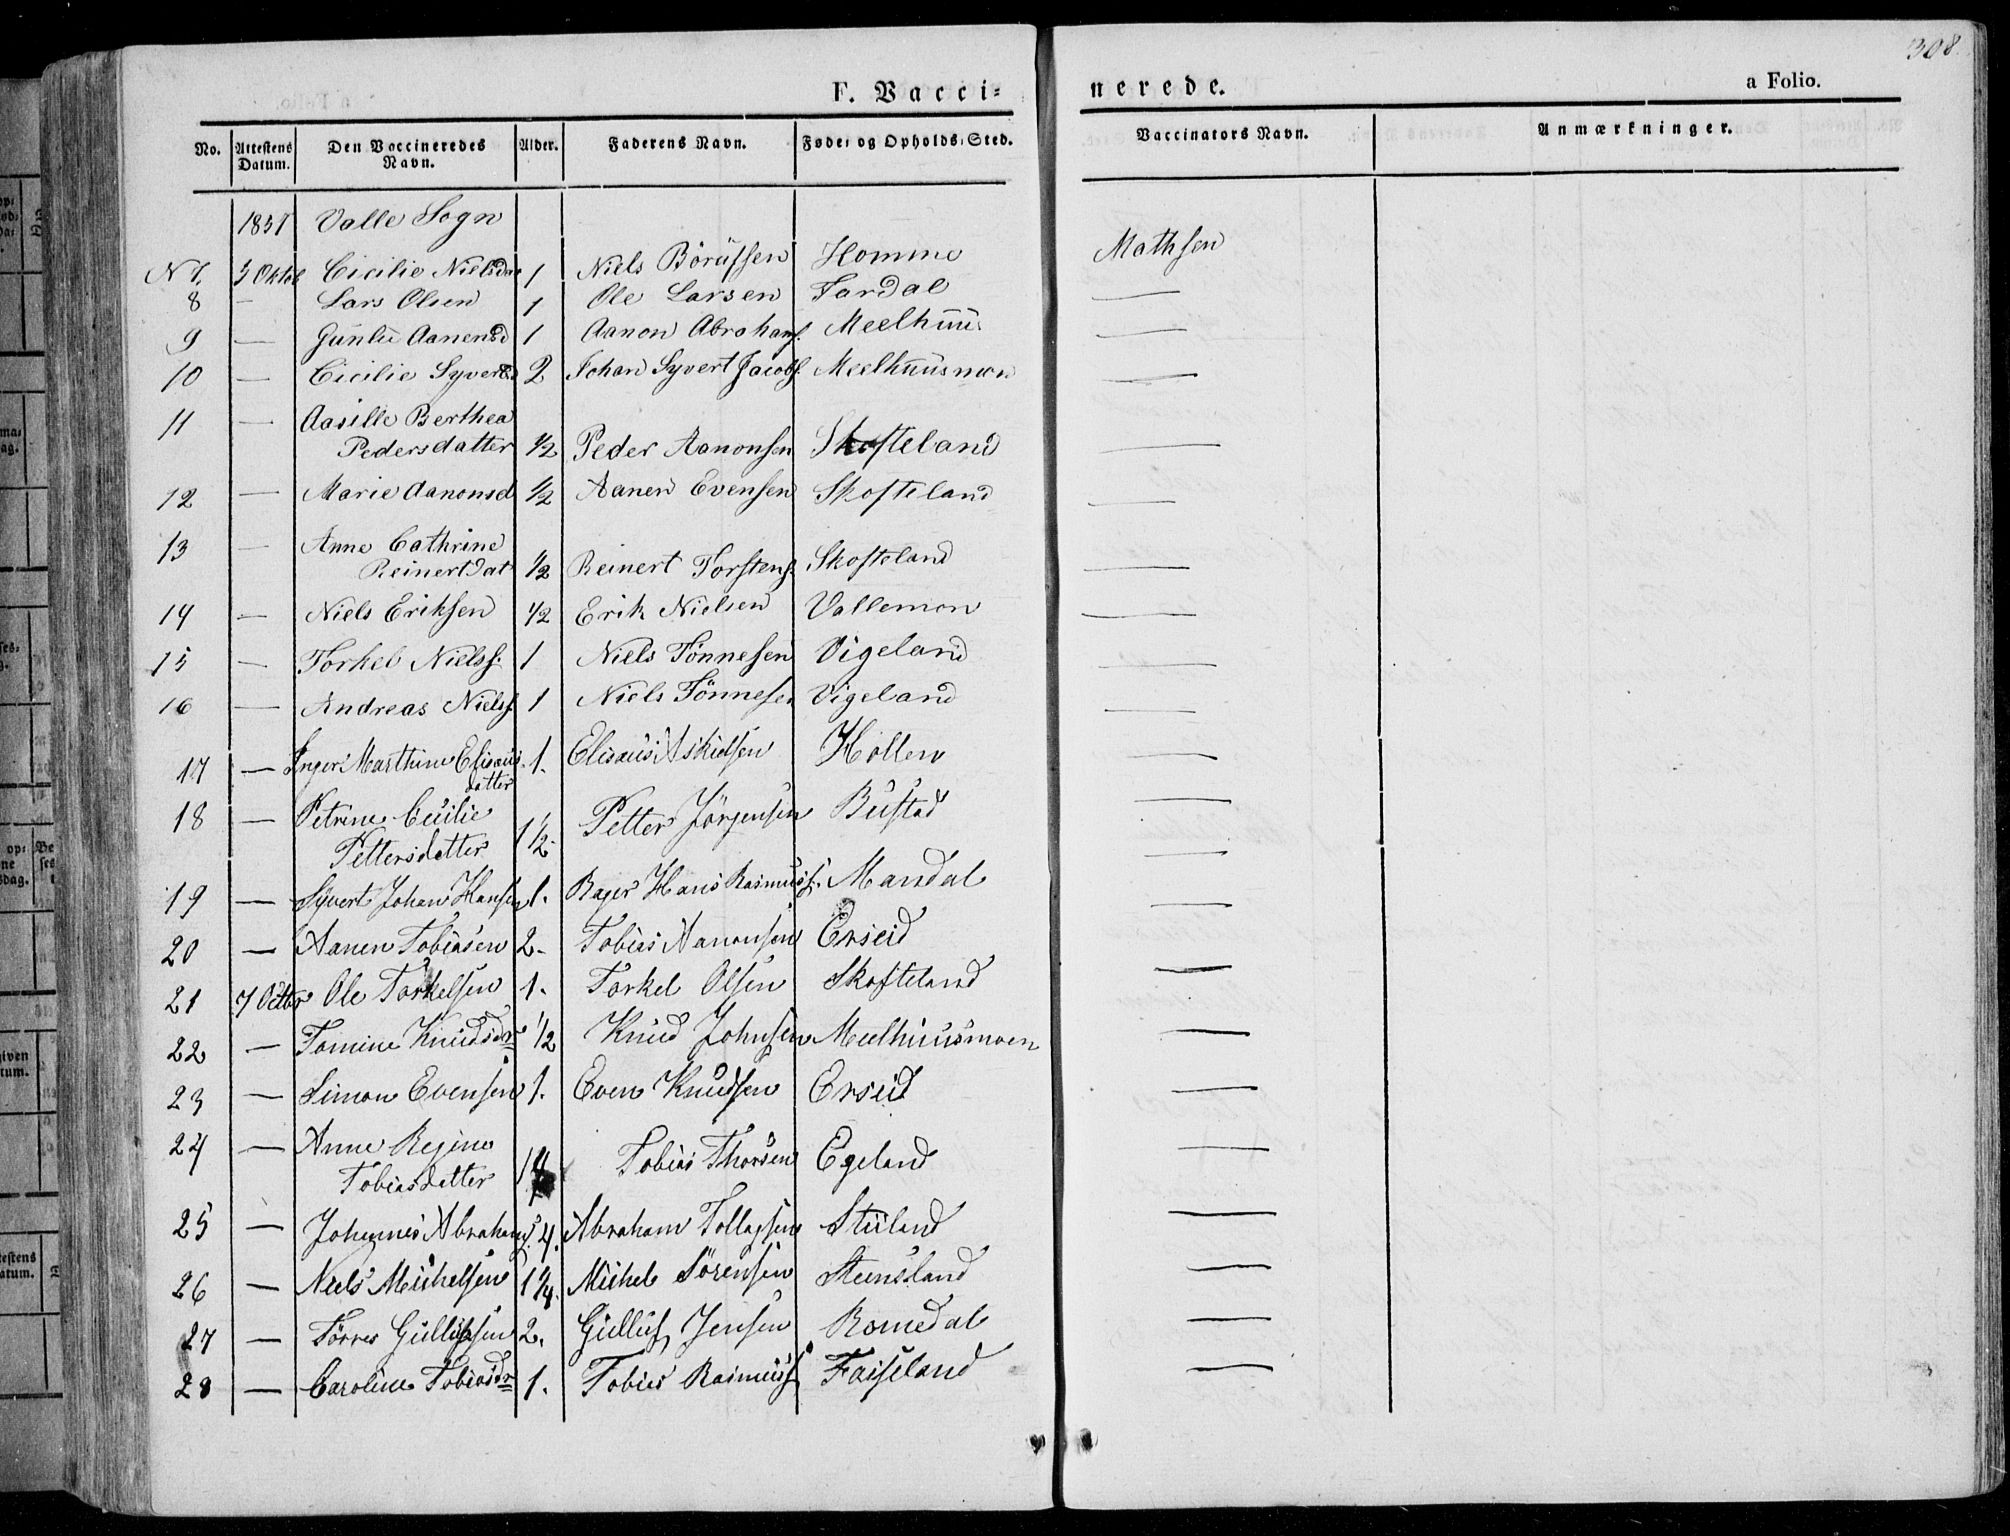 308.
F. Vacci- nerede. a Folio.
No. Attestens Datum. Den Vaccineredes Navn. Alder. Faderens Navn. Føde- og Opholds-Sted. Vaccinators Navn. Anmærkninger.
Valle Sogn
N 7. Oktob Cicilie Nielsdr 1 Niels Börüfsen Homme Mathsen
8 — Lars Olsen 1 Ole Larsen Fardal —
9 — Günlü Aanensd 1 Aanon Abrahams. Meelhuus —
10 — Cicilie Syvertsd 2 Johan Syvert Jacobs. Meelhuusmoen —
11 — Aasille Berthea
Pedersdatter 1/2 Peder Aanonsen Skofteland —
12 — Marie Aanonsd 1/2 Aanen Evensen Skofteland —
13 — Anne Cathrine
Reinertdat 1/2 Reinert Torstens. Skofteland —
14 — Niels Eriksen 1/2 Erik Nielsen Vallemon —
15 — Torkel Nielss. 1 Niels Tönnesen Vigeland —
16 — Andreas Nielss. 1 Niels Tönnesen Vigeland —
17 — Inger Marthine Elisæus 1. Elisæus Askildsen Hollen —
datter
18 — Petrine Cecilie
Pettersdatter 1 1/2. Petter Jörgensen Büstad —
19 — Syvert Johan Hansen 1. Bager Hans Rasmuss. Mandal —
20 — Aanen Tobiasen 2. Tobias Aanonsen Erseid —
21 7 Octbr Ole Torkelsen 1. Torkel Olsen Skofteland —
22 — Tomine Knudsdr 1/2 Knud Johnsen Meelhuusmoen —
23 — Simon Evensen 1. Even Knudsen Erseid —
24 — Anne Regine
Tobiasdatter Tobias Thorsen Egeland —
25 — Johannes Abrahams. 4. Abraham Tollagsen Stiland —
26 — Niels Michelsen 1 1/4. Michel Sörensen Steensland —
27 — Törres Gullufsen 2. Gülluf Jensen Romedal —
28 — Caroline Tobiasdr 1. Tobias Rasmuss. Faiseland —